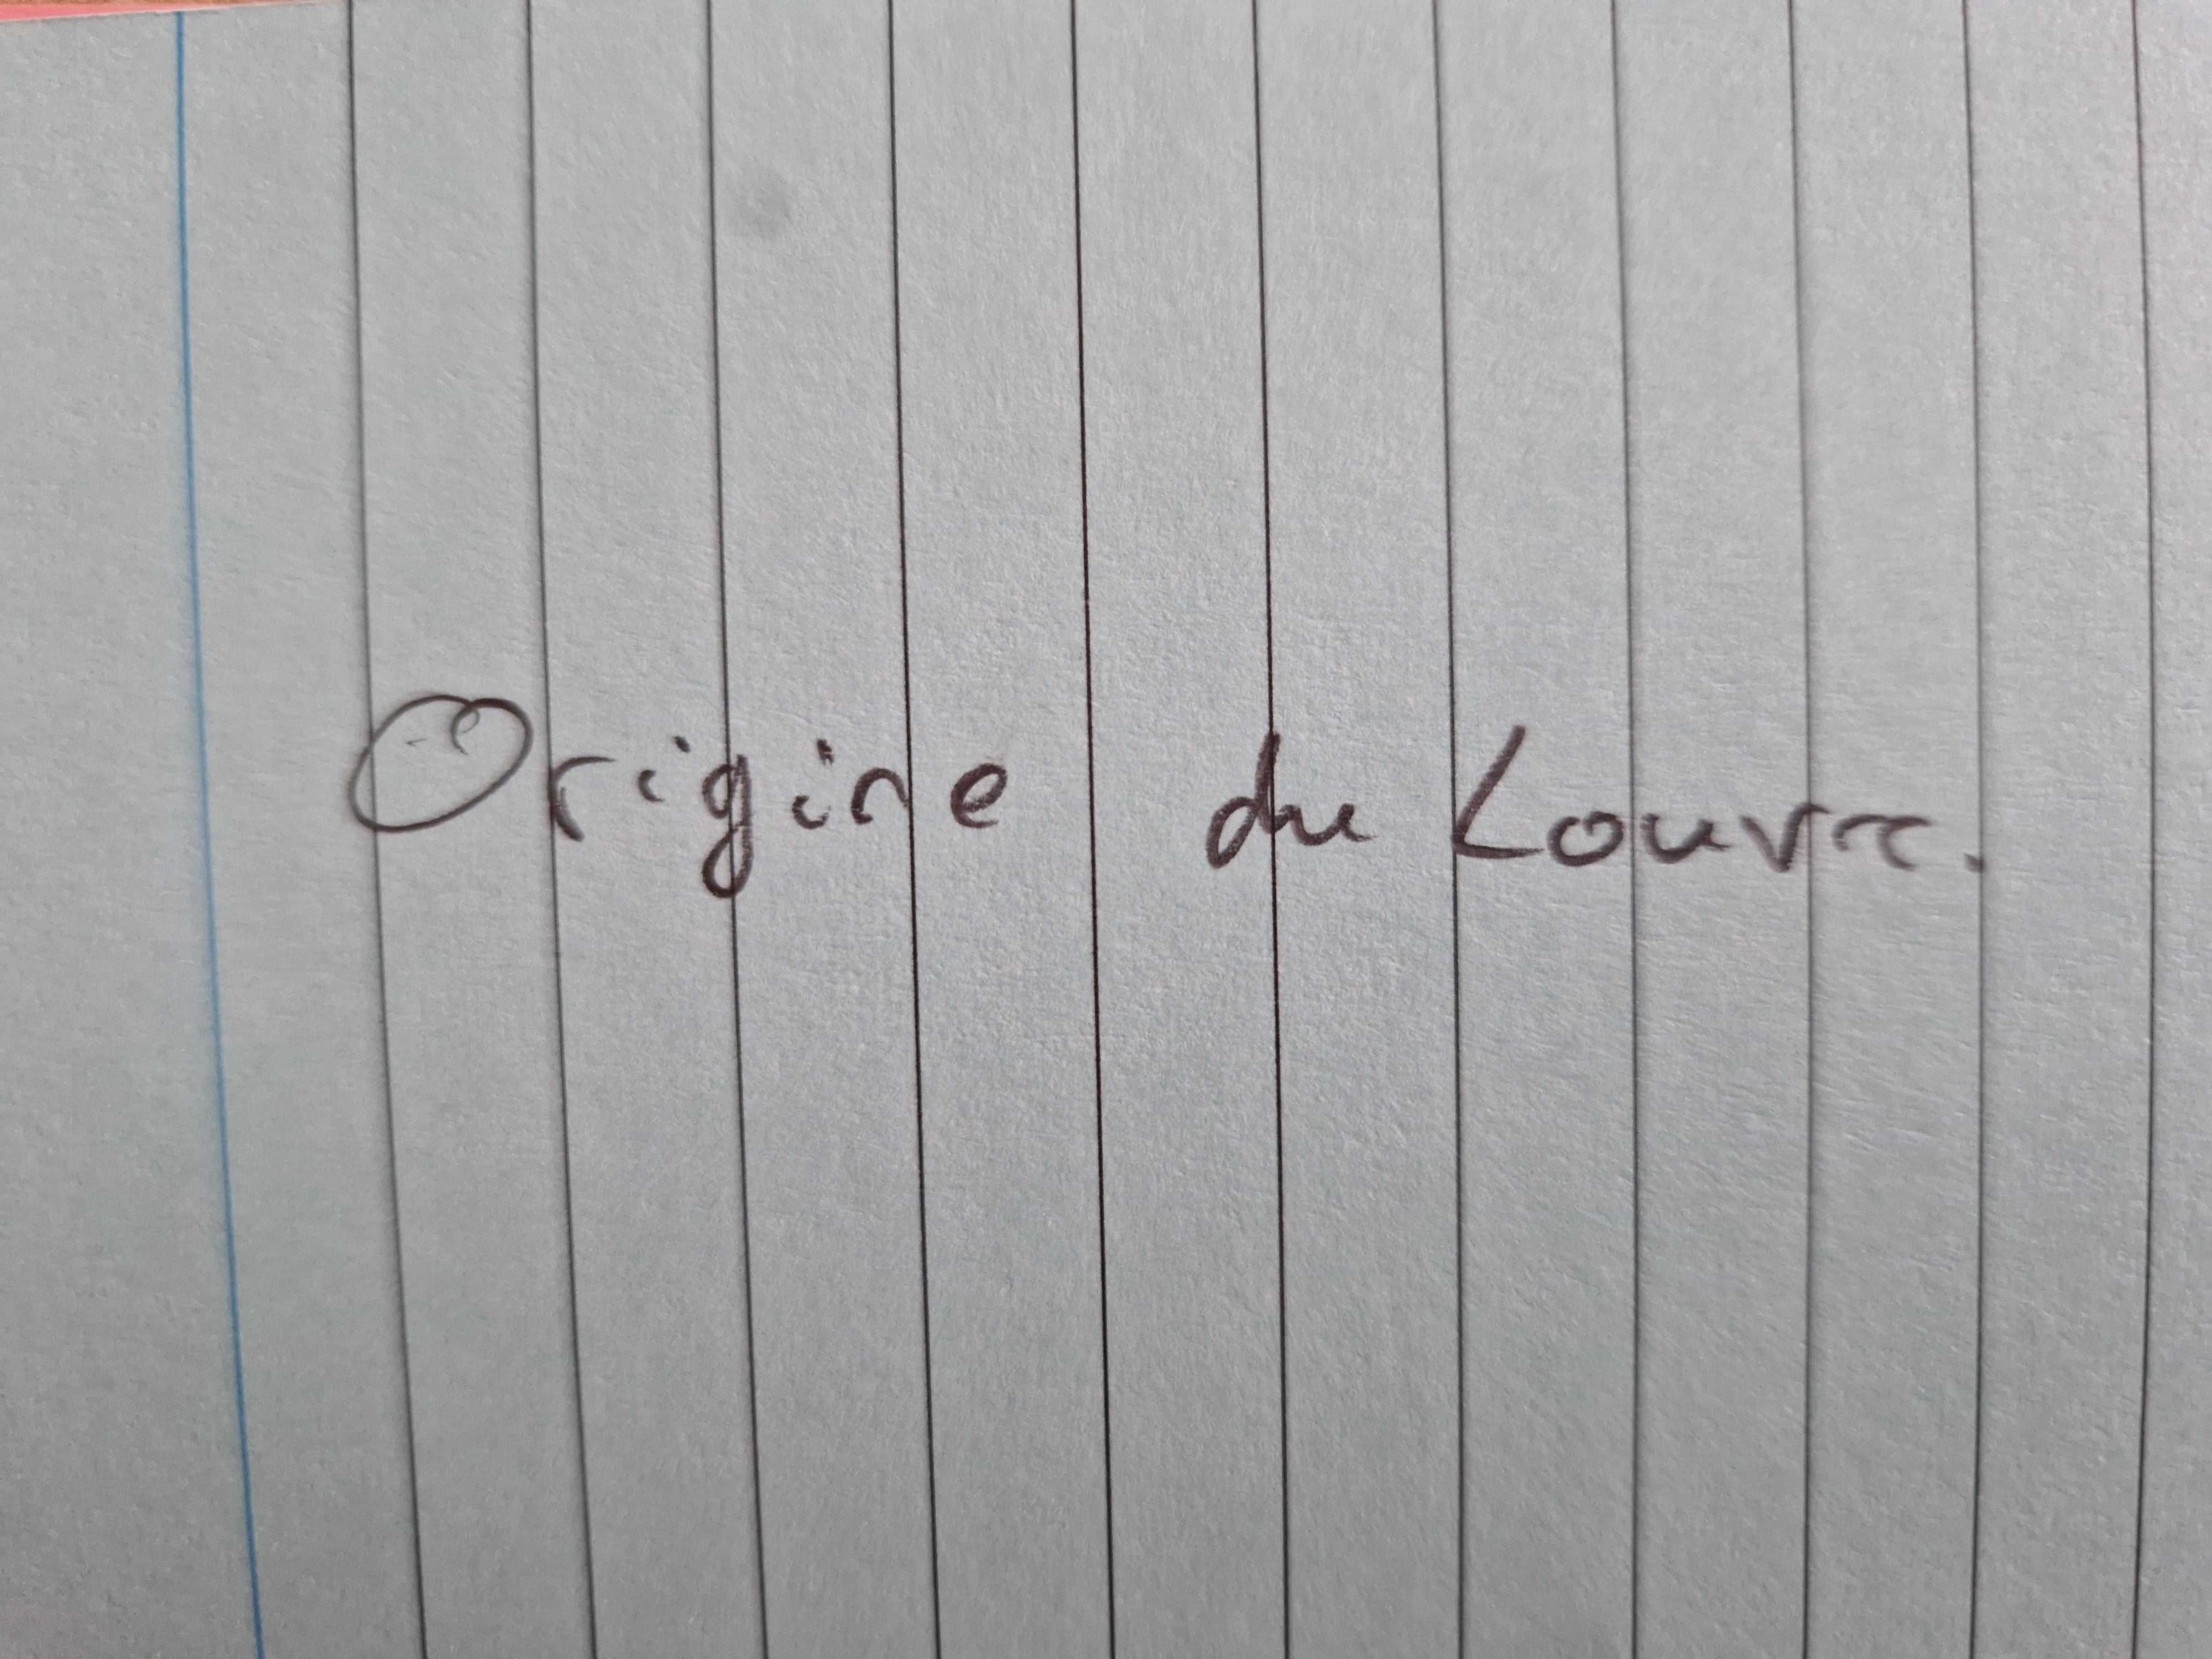 Origine du Louvre.